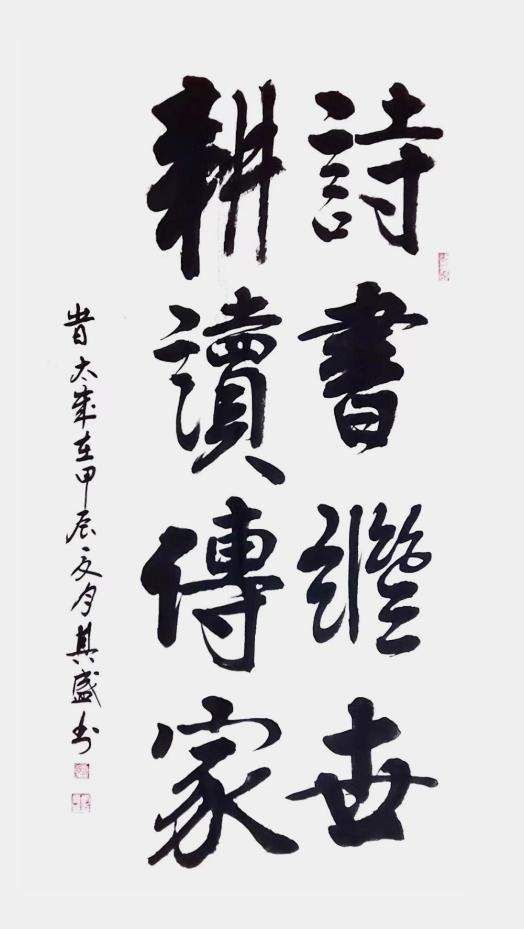 詩書繼世
耕讀傳家
時太歲在甲辰之夏月其盛书